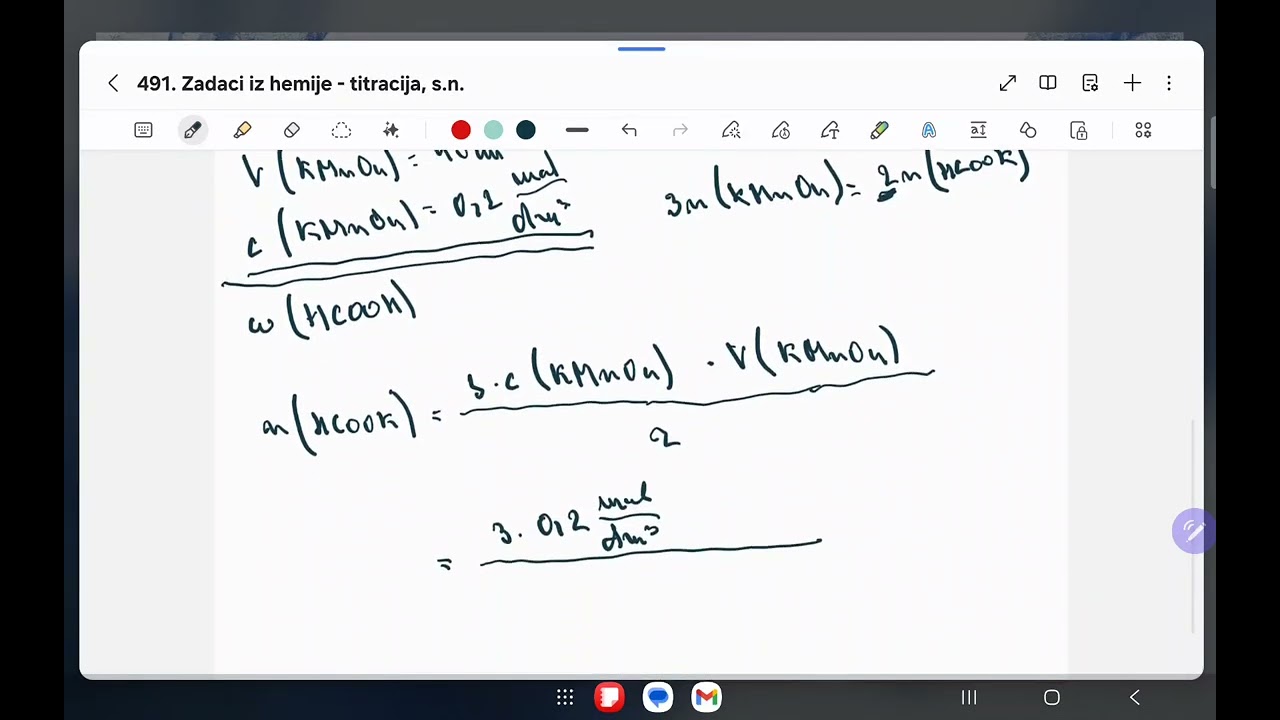 491. Zadaci iz hemije - titracija, s.n.
V (KMnO4) =
c (KMnO4) = 0,2 mol/dm³
3n (KMnO4) = 2n (HCOOK)
ω (HCOOK)
n (HCOOK) = 3 · c (KMnO4) · V (KMnO4) / 2
= 3 · 0,2 mol/dm³